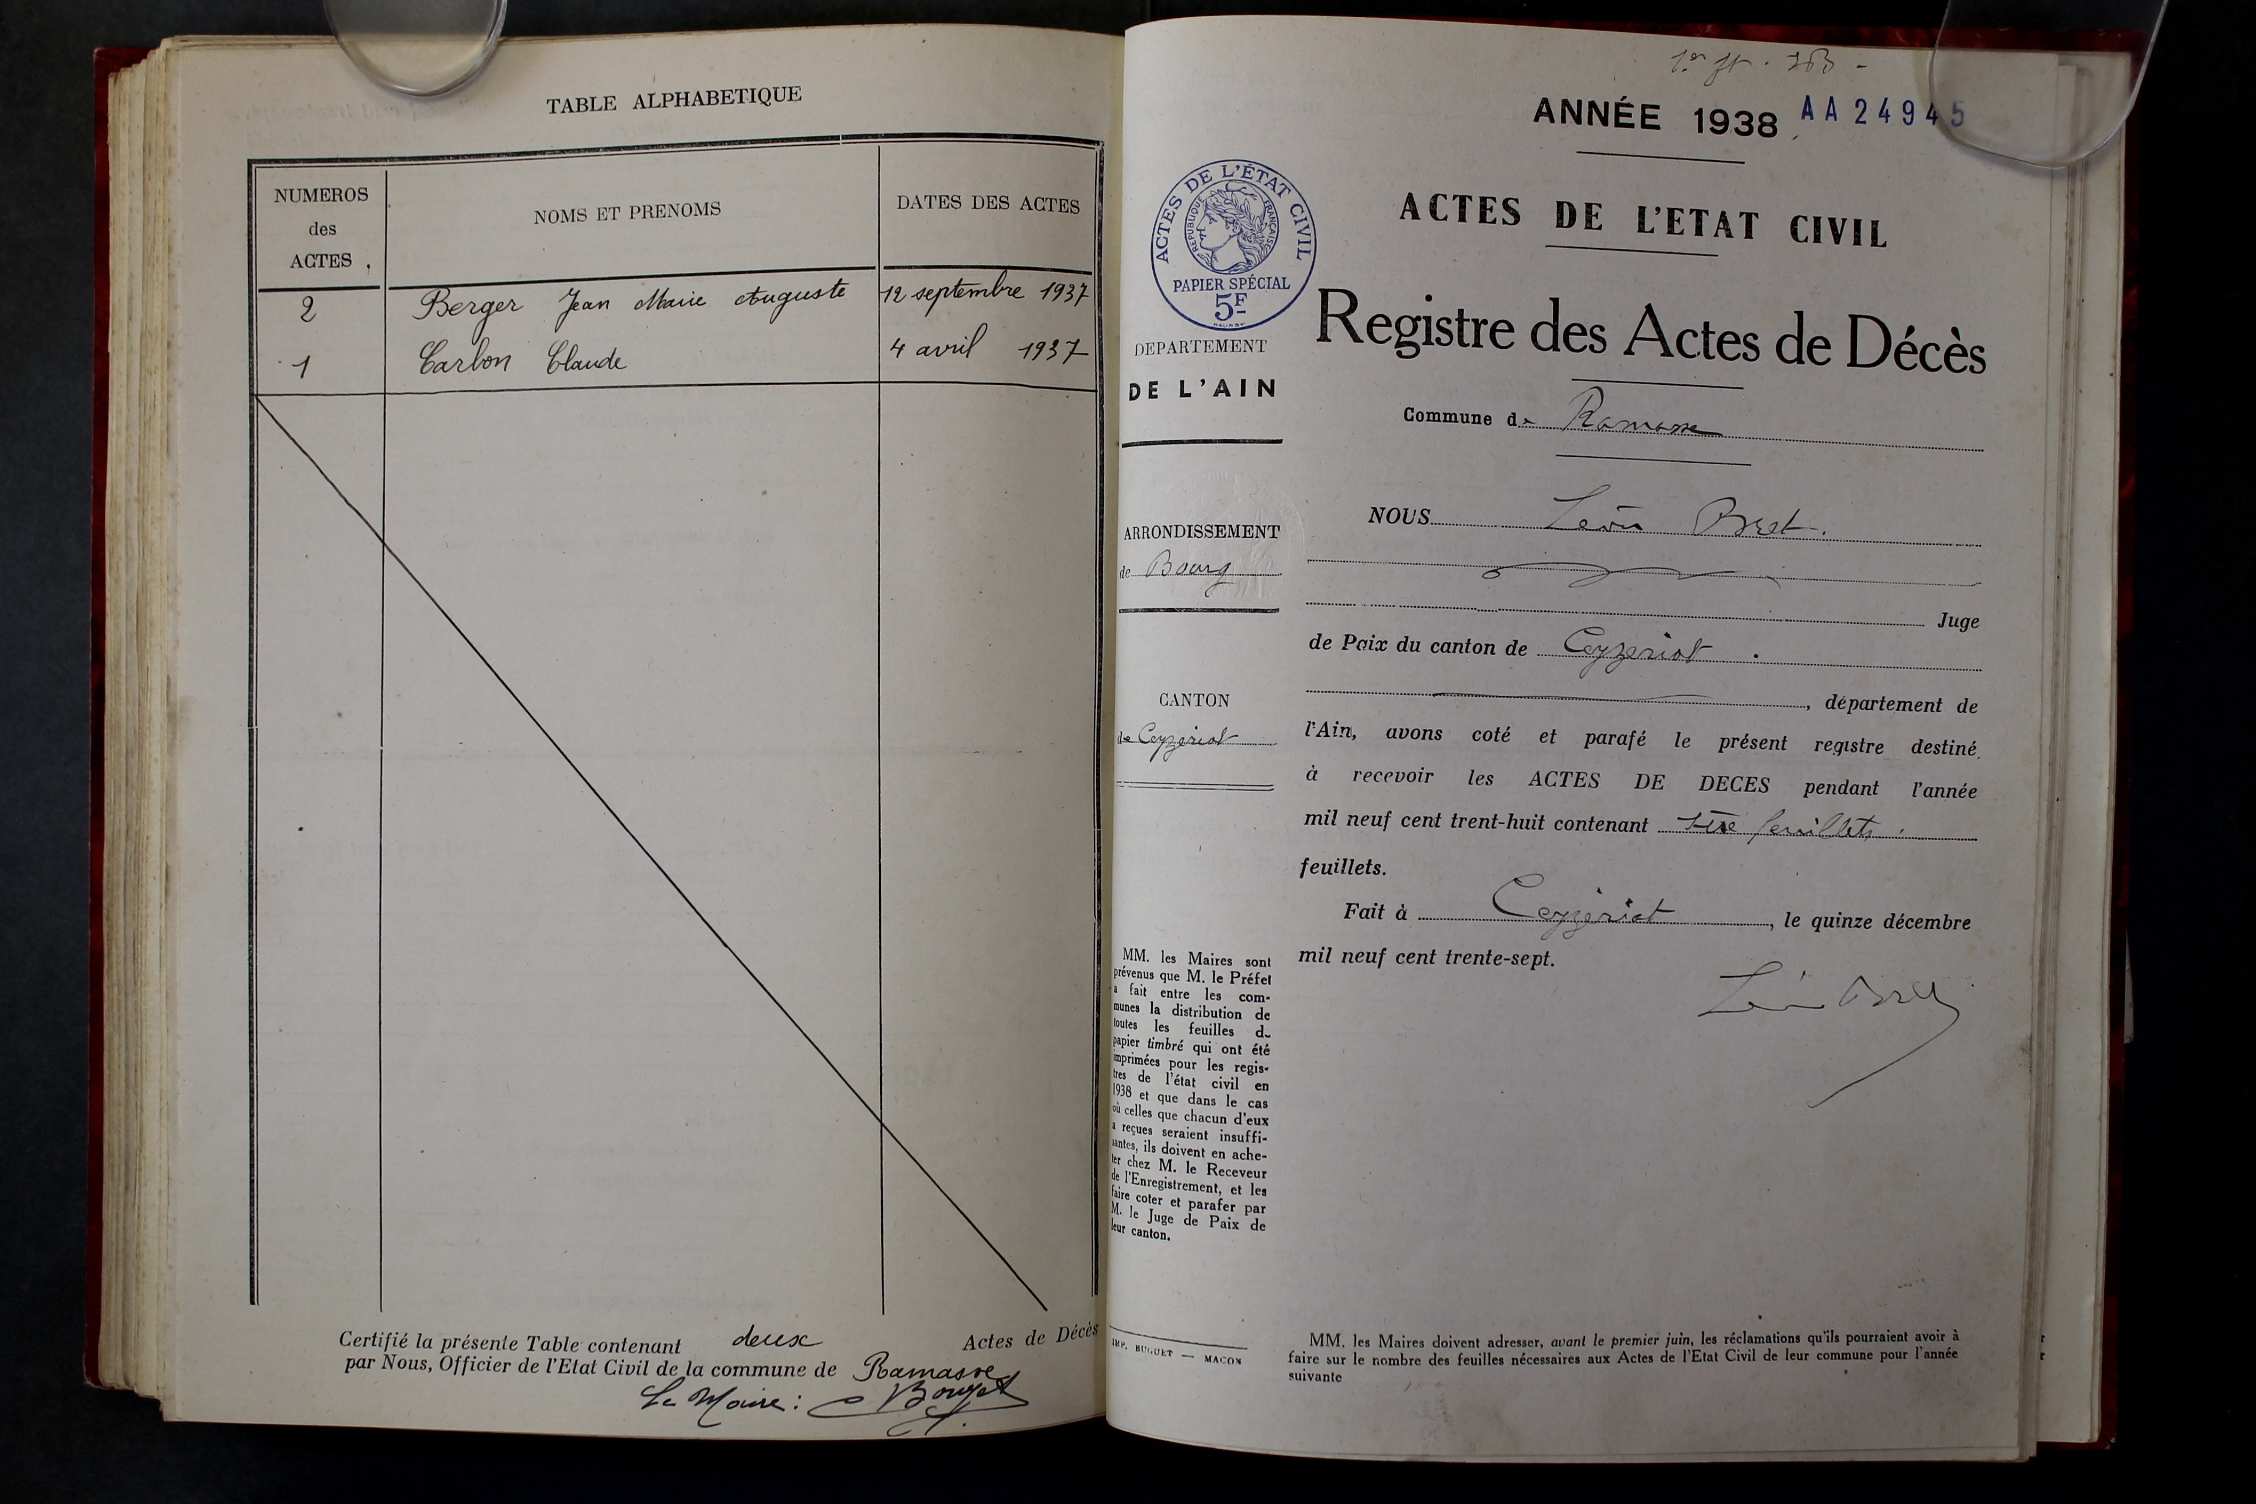 TABLE ALPHABETIQUE
NUMEROS
des
ACTES
NOMS ET PRENOMS
DATES DES ACTES
2 Berger Jean Marie Auguste 12 septembre 1937
1 Carbon Claude 4 avril 1937
Certifié la présente Table contenant deux Actes de Décès
par Nous, Officier de l'Etat Civil de la commune de Ramasse
Le Maire :
ANNÉE 1938 AA 24945
ACTES DE L'ÉTAT CIVIL
RÉPUBLIQUE FRANÇAISE
PAPIER SPÉCIAL
5F
DEPARTEMENT
DE L'AIN
ARRONDISSEMENT
de Bourg
CANTON
de Ceyzeriat
MM. les Maires sont
prévenus que M. le Préfet
a fait entre les com-
munes la distribution de
toutes les feuilles de
papier timbré qui ont été
imprimées pour les regis-
tres de l'état civil en
1938 et que dans le cas
où celles que chacun d'eux
a reçues seraient insuffi-
santes, ils doivent en ache-
ter chez M. le Receveur
de l'Enregistrement, et les
faire coter et parafer par
M. le Juge de Paix de
leur canton.
IMP. BUGUET — MACON
ACTES DE L'ETAT CIVIL
Registre des Actes de Décès
Commune de Ramasse
NOUS Léon Bret.
Juge
de Paix du canton de Ceyzeriat .
, département de
l'Ain, avons coté et parafé le présent registre destiné
à recevoir les ACTES DE DECES pendant l'année
mil neuf cent trent-huit contenant feuillets .
feuillets.
Fait à Ceyzériat , le quinze décembre
mil neuf cent trente-sept.
Léon Bret
MM. les Maires doivent adresser, avant le premier juin, les réclamations qu'ils pourraient avoir à
faire sur le nombre des feuilles nécessaires aux Actes de l'Etat Civil de leur commune pour l'année
suivante